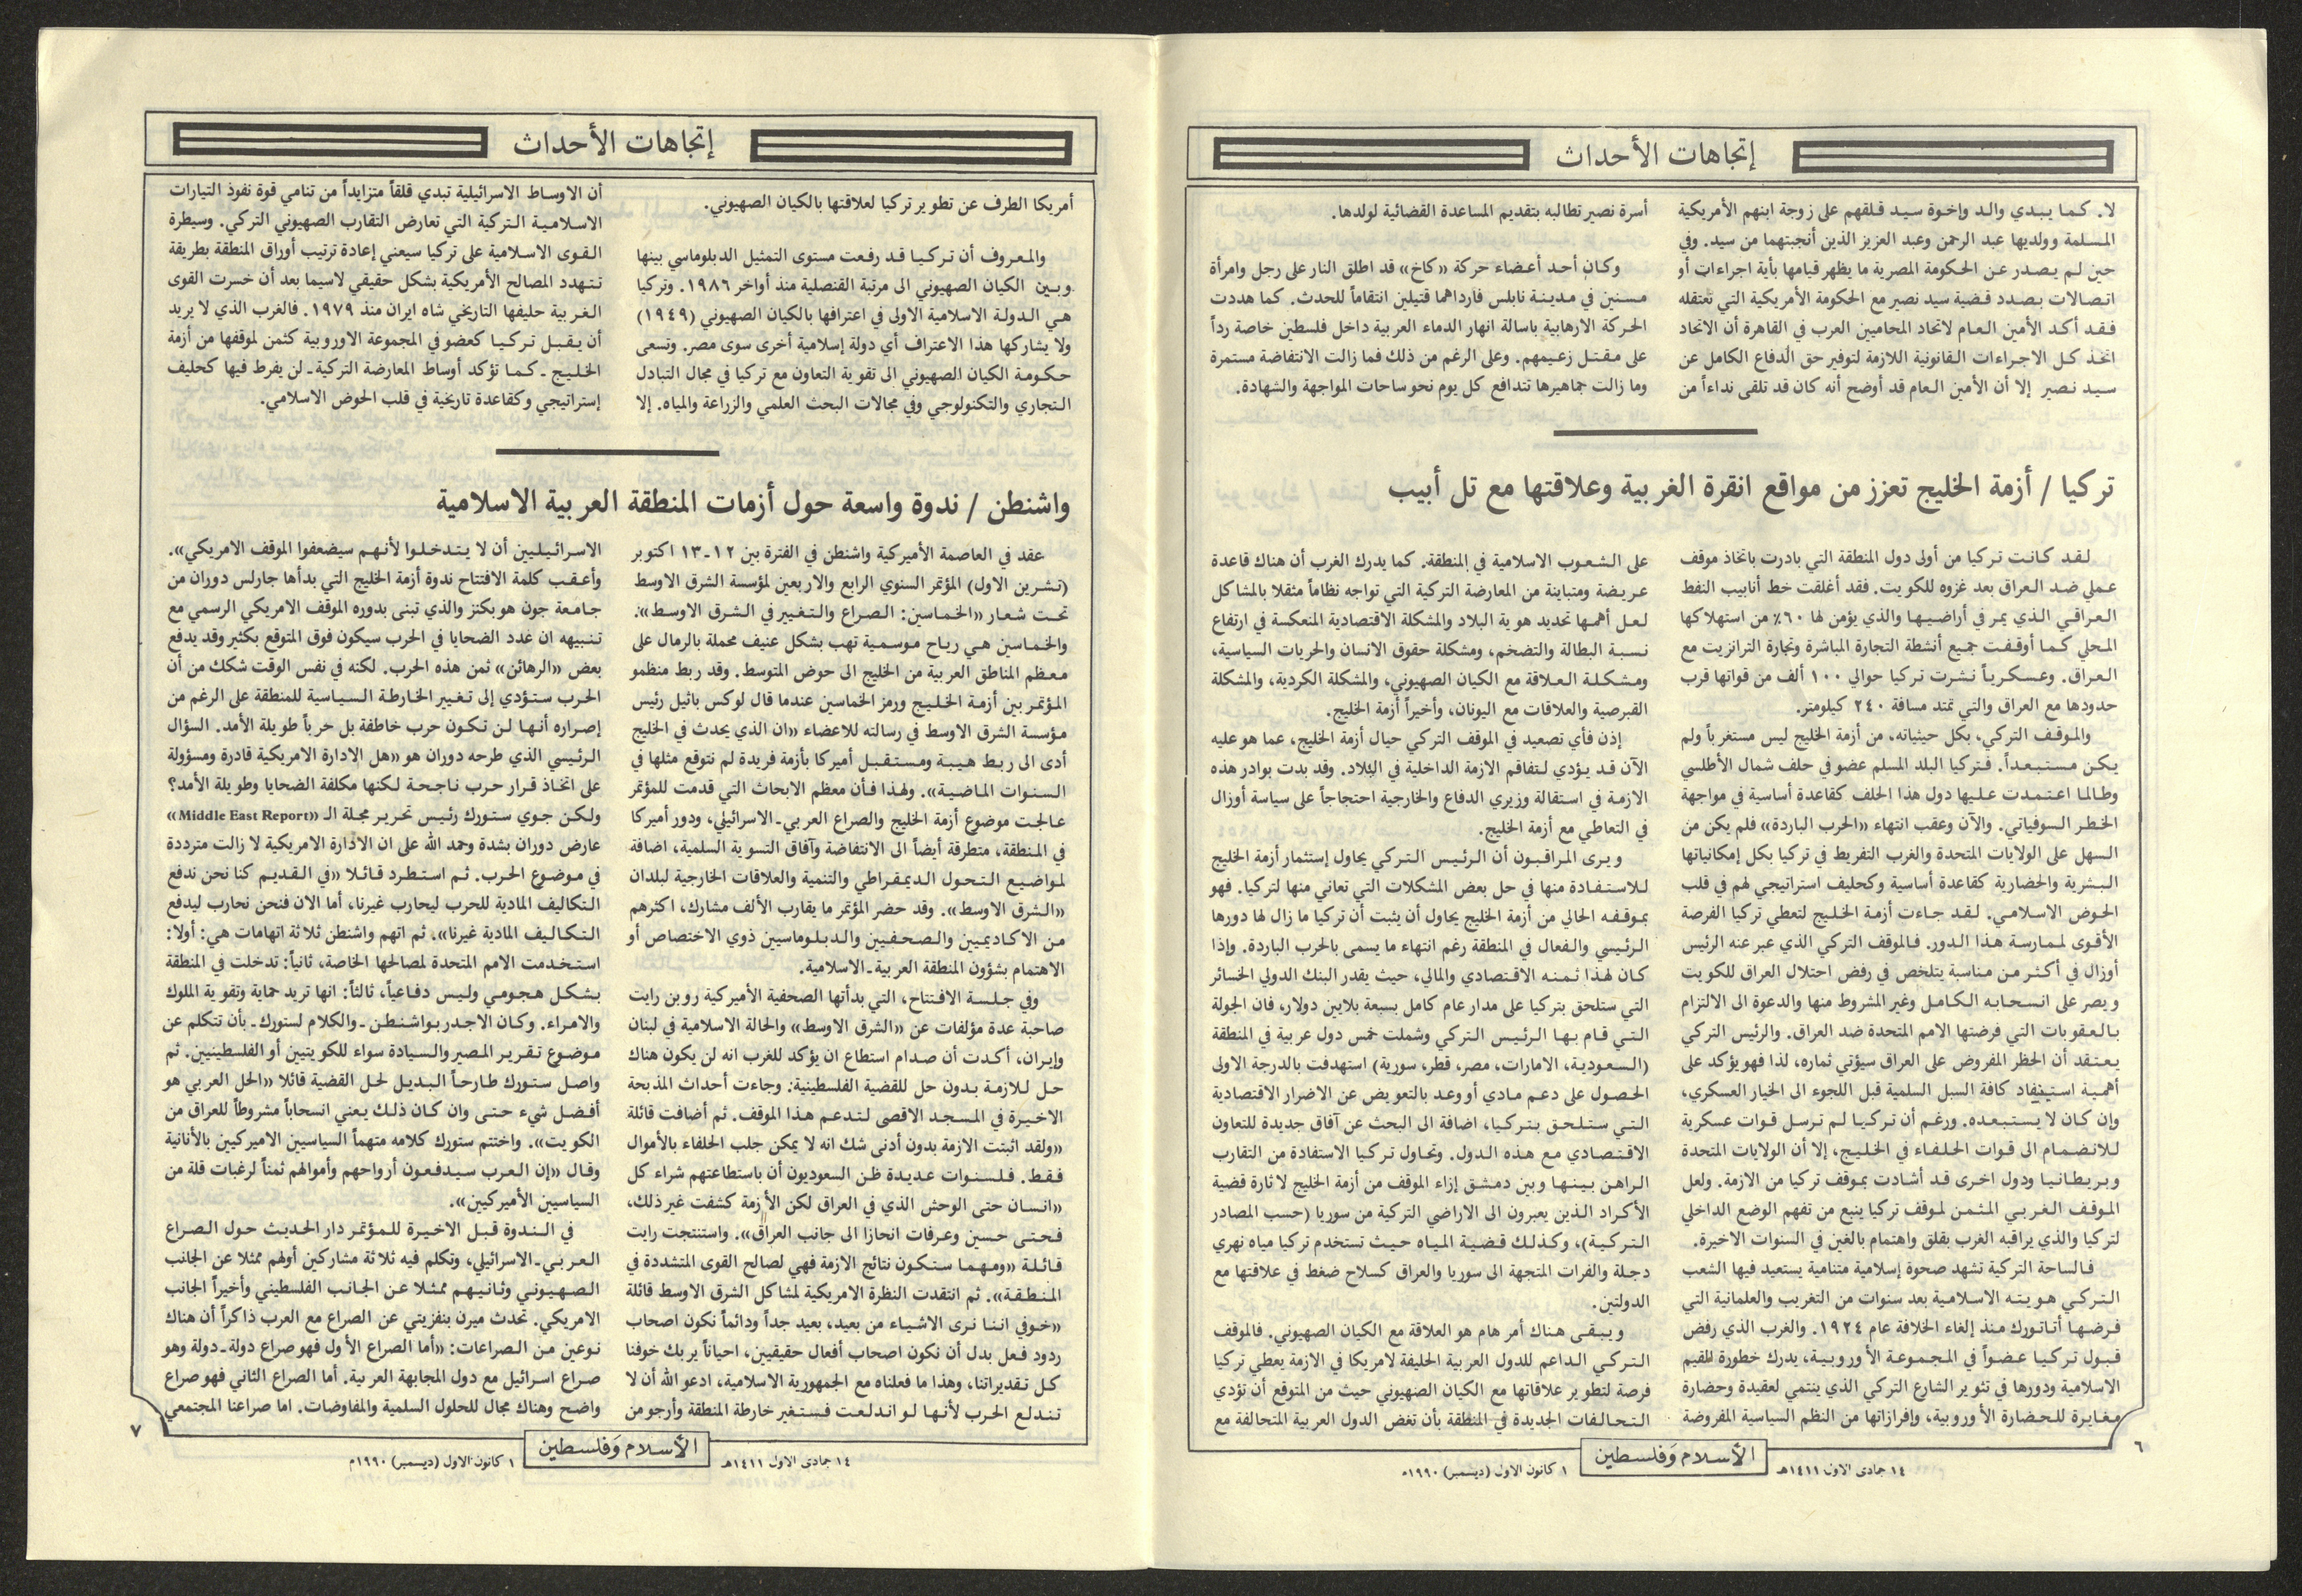 إتجاهات الأحداث
لا. كما يبدي والد وإخوة سيد قلقهم على زوجة ابنهم الأمريكية
المسلمة وولديها عبد الرحمن وعبد العزيز الذين أنجبتهما من سيد. وفي
حين لم يصدر عن الحكومة المصرية ما يظهر قيامها بأية اجراءات أو
اتصالات بصدد قضية سيد نصير مع الحكومة الأمريكية التي تعتقله
فقد أكد الأمين العام لاتحاد المحاميين العرب في القاهرة أن الاتحاد
اتخذ كل الاجراءات القانونية اللازمة لتوفير حق الدفاع الكامل عن
سيد نصير إلا أن الأمين العام قد أوضح أنه كان قد تلقى نداءاً من
أسرة نصير تطالبه بتقديم المساعدة القضائية لولدها.
وكان أحد أعضاء حركة «كاخ» قد اطلق النار على رجل وامرأة
مسنين في مدينة نابلس فارداهما قتيلين انتقاماً للحدث. كما هددت
الحركة الارهابية باسالة انهار الدماء العربية داخل فلسطين خاصة رداً
على مقتل زعيمهم. وعلى الرغم من ذلك فما زالت الانتفاضة مستمرة
وما زالت جماهيرها تتدافع كل يوم نحو ساحات المواجهة والشهادة.
تركيا / أزمة الخليج تعزز من مواقع انقرة الغربية وعلاقتها مع تل أبيب
لقد كانت تركيا من أولى دول المنطقة التي بادرت باتخاذ موقف
عملي ضد العراق بعد غزوه للكويت. فقد أغلقت خط أنابيب النفط
العراقي الذي يمر في أراضيها والذي يؤمن لها ٦٠٪ من استهلاكها
المحلي كما أوقفت جميع أنشطة التجارة المباشرة وتجارة الترانزيت مع
العراق. وعسكرياً نشرت تركيا حوالي ١٠٠ ألف من قواتها قرب
حدودها مع العراق والتي تمتد مسافة ٢٤٠ كيلومتر.
والموقف التركي، بكل حيثياته، من أزمة الخليج ليس مستغرباً ولم
يكن مستبعداً. فتركيا البلد المسلم عضو في حلف شمال الأطلسي
وطالما اعتمدت عليها دول هذا الحلف كقاعدة أساسية في مواجهة
الخطر السوفياتي. والآن وعقب انتهاء «الحرب الباردة» فلم يكن من
السهل على الولايات المتحدة والغرب التفريط في تركيا بكل إمكانياتها
البشرية والحضارية كقاعدة أساسية وكحليف استراتيجي لهم في قلب
الحوض الاسلامي. لقد جاءت أزمة الخليج لتعطي تركيا الفرصة
الأقوى لممارسة هذا الدور. فالموقف التركي الذي عبر عنه الرئيس
أوزال في أكثر من مناسبة يتلخص في رفض احتلال العراق للكويت
ويصر على انسحابه الكامل وغير المشروط منها والدعوة الى الالتزام
بالعقوبات التي فرضتها الامم المتحدة ضد العراق. والرئيس التركي
يعتقد أن الحظر المفروض على العراق سيؤتي ثماره، لذا فهو يؤكد على
أهمية استيفاد كافة السبل السلمية قبل اللجوء الى الخيار العسكري،
وإن كان لا يستبعده. ورغم أن تركيا لم ترسل قوات عسكرية
للانضمام الى قوات الحلفاء في الخليج، إلا أن الولايات المتحدة
وبريطانيا ودول اخرى قد أشادت بموقف تركيا من الازمة. ولعل
الموقف الغربي المثمن لموقف تركيا ينبع من تفهم الوضع الداخلي
لتركيا والذي يراقبه الغرب بقلق واهتمام بالغين في السنوات الاخيرة.
فالساحة التركية تشهد صحوة إسلامية متنامية يستعيد فيها الشعب
التركي هويته الاسلامية بعد سنوات من التغريب والعلمانية التي
فرضها أتاتورك منذ إلغاء الخلافة عام ١٩٢٤. والغرب الذي رفض
قبول تركيا عضواً في المجموعة الأوروبية، يدرك خطورة القيم
الاسلامية ودورها في تثوير الشارع التركي الذي ينتمي لعقيدة وحضارة
مغايرة للحضارة الأوروبية، وإفرازاتها من النظم السياسية المفروضة
على الشعوب الاسلامية في المنطقة. كما يدرك الغرب أن هناك قاعدة
عريضة ومتباينة من المعارضة التركية التي تواجه نظاماً مثقلا بالمشاكل
لعل أهمها تحديد هوية البلاد والمشكلة الاقتصادية المنعكسة في ارتفاع
نسبة البطالة والتضخم، ومشكلة حقوق الانسان والحريات السياسية،
ومشكلة العلاقة مع الكيان الصهيوني، والمشكلة الكردية، والمشكلة
القبرصية والعلاقات مع اليونان، وأخيراً أزمة الخليج.
إذن فأي تصعيد في الموقف التركي حيال أزمة الخليج، عما هو عليه
الآن قد يؤدي لتفاقم الازمة الداخلية في البلاد. وقد بدت بوادر هذه
الازمة في استقالة وزيري الدفاع والخارجية احتجاجاً على سياسة أوزال
في التعاطي مع أزمة الخليج.
ويرى المراقبون أن الرئيس التركي يحاول إستثمار أزمة الخليج
للاستفادة منها في حل بعض المشكلات التي تعاني منها لتركيا. فهو
بموقفه الحالي من أزمة الخليج يحاول أن يثبت أن تركيا ما زال لها دورها
الرئيسي والفعال في المنطقة رغم انتهاء ما يسمى بالحرب الباردة. وإذا
كان لهذا ثمنه الاقتصادي والمالي، حيث يقدر البنك الدولي الخسائر
التي ستلحق بتركيا على مدار عام كامل بسبعة بلايين دولار، فان الجولة
التي قام بها الرئيس التركي وشملت خمس دول عربية في المنطقة
(السعودية، الامارات، مصر، قطر، سورية) استهدفت بالدرجة الاولى
الحصول على دعم مادي أو وعد بالتعويض عن الاضرار الاقتصادية
التي ستلحق بتركيا، اضافة الى البحث عن آفاق جديدة للتعاون
الاقتصادي مع هذه الدول. وتحاول تركيا الاستفادة من التقارب
الراهن بينها وبين دمشق إزاء الموقف من أزمة الخليج لاثارة قضية
الأكراد الذين يعبرون الى الاراضي التركية من سوريا (حسب المصادر
التركية)، وكذلك قضية المياه حيث تستخدم تركيا مياه نهري
دجلة والفرات المتجهة الى سوريا والعراق كسلاح ضغط في علاقتها مع
الدولتين.
ويبقى هناك أمر هام هو العلاقة مع الكيان الصهيوني. فالموقف
التركي الداعم للدول العربية الحليفة لامريكا في الازمة يعطي تركيا
فرصة لتطوير علاقاتها مع الكيان الصهيوني حيث من المتوقع أن تؤدي
التحالفات الجديدة في المنطقة بأن تغض الدول العربية المتحالفة مع
٦
١٤ جمادى الاول ١٤١١هـ
الأسلام وَفلسطين
١ كانون الاول (ديسمبر) ١٩٩٠م
إتجاهات الأحداث
أمريكا الطرف عن تطوير تركيا لعلاقتها بالكيان الصهيوني.
والمعروف أن تركيا قد رفعت مستوى التمثيل الدبلوماسي بينها
وبين الكيان الصهيوني الى مرتبة القنصلية منذ أواخر ١٩٨٦. وتركيا
هي الدولة الاسلامية الاولى في اعترافها بالكيان الصهيوني (١٩٤٩)
ولا يشاركها هذا الاعتراف أي دولة إسلامية أخرى سوى مصر. وتسعى
حكومة الكيان الصهيوني الى تقوية التعاون مع تركيا في مجال التبادل
التجاري والتكنولوجي وفي مجالات البحث العلمي والزراعة والمياه. إلا
أن الاوساط الاسرائيلية تبدي قلقاً متزايداً من تنامي قوة نفوذ التيارات
الاسلامية التركية التي تعارض التقارب الصهيوني التركي. وسيطرة
القوى الاسلامية على تركيا سيعني إعادة ترتيب أوراق المنطقة بطريقة
تتهدد المصالح الأمريكية بشكل حقيقي لاسيما بعد أن خسرت القوى
الغربية حليفها التاريخي شاه ايران منذ ١٩٧٩. فالغرب الذي لا يريد
أن يقبل تركيا كعضو في المجموعة الاوروبية كثمن لموقفها من أزمة
الخليج ـ كما تؤكد أوساط المعارضة التركية ـ لن يفرط فيها كحليف
إستراتيجي وكقاعدة تاريخية في قلب الحوض الاسلامي.
واشنطن / ندوة واسعة حول أزمات المنطقة العربية الاسلامية
عقد في العاصمة الأميركية واشنطن في الفترة بين ١٢ـ١٣ اكتوبر
(تشرين الاول) المؤتمر السنوي الرابع والاربعين لمؤسسة الشرق الاوسط
تحت شعار «الخماسين: الصراع والتغيير في الشرق الاوسط».
والخماسين هي رياح موسمية تهب بشكل عنيف محملة بالرمال على
معظم المناطق العربية من الخليج الى حوض المتوسط. وقد ربط منظمو
المؤتمر بين أزمة الخليج ورمز الخماسين عندما قال لوكس باتيل رئيس
مؤسسة الشرق الاوسط في رسالته للاعضاء «ان الذي يحدث في الخليج
أدى الى ربط هيبة ومستقبل أميركا بأزمة فريدة لم نتوقع مثلها في
السنوات الماضية». ولهذا فأن معظم الابحاث التي قدمت للمؤتمر
عالجت موضوع أزمة الخليج والصراع العربي ـ الاسرائيلي، ودور أميركا
في المنطقة، متطرقة أيضاً الى الانتفاضة وآفاق التسوية السلمية، اضافة
لمواضيع التحول الديمقراطي والتنمية والعلاقات الخارجية لبلدان
«الشرق الاوسط». وقد حضر المؤتمر ما يقارب الألف مشارك، اكثرهم
من الاكاديميين والصحفيين والدبلوماسيين ذوي الاختصاص أو
الاهتمام بشؤون المنطقة العربية ـ الاسلامية.
وفي جلسة الافتتاح، التي بدأتها الصحفية الأميركية روبن رايت
صاحبة عدة مؤلفات عن «الشرق الاوسط» والحالة الاسلامية في لبنان
وإيران، أكدت أن صدام استطاع ان يؤكد للغرب انه لن يكون هناك
حل للازمة بدون حل للقضية الفلسطينية: وجاءت أحداث المذبحة
الاخيرة في المسجد الاقصى لتدعم هذا الموقف. ثم أضافت قائلة
«ولقد اثبتت الازمة بدون أدنى شك انه لا يمكن جلب الحلفاء بالأموال
فقط. فلسنوات عديدة ظن السعوديون أن باستطاعتهم شراء كل
«انسان حتى الوحش الذي في العراق لكن الأزمة كشفت غير ذلك،
فحتى حسين وعرفات انحازا الى جانب العراق». واستنتجت رايت
قائلة «ومهما ستكون نتائج الازمة فهي لصالح القوى المتشددة في
المنطقة». ثم انتقدت النظرة الامريكية لمشاكل الشرق الاوسط قائلة
«خوفي اننا نرى الاشياء من بعيد، بعيد جداً ودائماً نكون اصحاب
ردود فعل بدل أن نكون اصحاب أفعال حقيقيين، احياناً يربك خوفنا
كل تقديراتنا، وهذا ما فعلناه مع الجمهورية الاسلامية، ادعو الله أن لا
تندلع الحرب لأنها لو اندلعت فستغير خارطة المنطقة وأرجو من
الاسرائيليين أن لا يتدخلوا لأنهم سيضعفوا الموقف الامريكي».
وأعقب كلمة الافتتاح ندوة أزمة الخليج التي بدأها جارلس دوران من
جامعة جون هوبكنز والذي تبنى بدوره الموقف الامريكي الرسمي مع
تنبيهه ان عدد الضحايا في الحرب سيكون فوق المتوقع بكثير وقد يدفع
بعض «الرهائن» ثمن هذه الحرب. لكنه في نفس الوقت شكك من أن
الحرب ستؤدي إلى تغيير الخارطة السياسية للمنطقة على الرغم من
إصراره أنها لن تكون حرب خاطفة بل حرباً طويلة الأمد. السؤال
الرئيسي الذي طرحه دوران هو «هل الادارة الامريكية قادرة ومسؤولة
على اتخاذ قرار حرب ناجحة لكنها مكلفة الضحايا وطويلة الأمد؟
ولكن جوي ستورك رئيس تحرير مجلة الـ «Middle East Report»
عارض دوران بشدة وحمد الله على ان الادارة الامريكية لا زالت مترددة
في موضوع الحرب. ثم استطرد قائلا «في القديم كنا نحن ندفع
التكاليف المادية للحرب ليحارب غيرنا، أما الان فنحن نحارب ليدفع
التكاليف المادية غيرنا». ثم اتهم واشنطن ثلاثة اتهامات هي: أولا:
استخدمت الامم المتحدة لمصالحها الخاصة، ثانياً: تدخلت في المنطقة
بشكل هجومي وليس دفاعياً، ثالثاً: انها تريد حماية وتقوية الملوك
والامراء. وكان الاجدر بواشنطن ـ والكلام لستورك ـ بأن تتكلم عن
موضوع تقرير المصير والسيادة سواء للكويتيين أو الفلسطينيين. ثم
واصل ستورك طارحاً البديل لحل القضية قائلا «الحل العربي هو
أفضل شيء حتى وان كان ذلك يعني انسحاباً مشروطاً للعراق من
الكويت». واختتم ستورك كلامه متهماً السياسيين الاميركيين بالأنانية
وقال «إن العرب سيدفعون أرواحهم وأموالهم ثمناً لرغبات قلة من
السياسيين الأميركيين».
في الندوة قبل الاخيرة للمؤتمر دار الحديث حول الصراع
العربي ـ الاسرائيلي، وتكلم فيه ثلاثة مشاركين أولهم ممثلا عن الجانب
الصهيوني وثانيهم ممثلا عن الجانب الفلسطيني وأخيراً الجانب
الامريكي. تحدث ميرن بنفزيتي عن الصراع مع العرب ذاكراً أن هناك
نوعين من الصراعات: «أما الصراع الأول فهو صراع دولة ـ دولة وهو
صراع اسرائيل مع دول المجابهة العربية. أما الصراع الثاني فهو صراع
واضح وهناك مجال للحلول السلمية والمفاوضات. اما صراعنا المجتمعي
٧
١٤ جمادى الاول ١٤١١هـ
الأسلام وَفلسطين
١ كانون الاول (ديسمبر) ١٩٩٠م